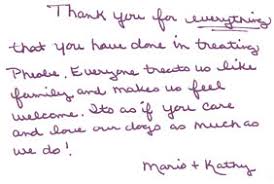 Thank you for everything
that you have done in treating
Phoebe. Everyone treats us like
family and makes us feel
welcome. Its as if you care
and love our dogs as much as
we do!
Mario + Kathy